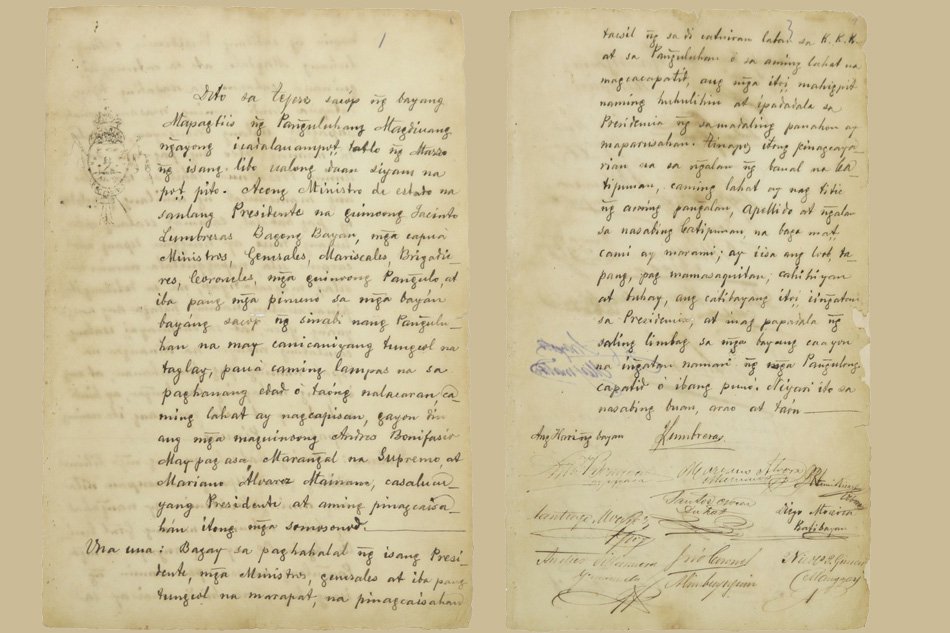 1
Dito sa Tejeros sacop ñg bayang
Mapagtiis ñg Pañguluhang Magdiwang
ñgayong icadalauampo't, tatlo ñg Marzo
ñg isang libo ualong daan siyam na
po't, pito. Acong Ministro de estado na
sanlang Presidente na guinoong Jacinto
Lumbreras Bagong Bayan, mga capua
Ministros, Generales, Mariscales, Brigadie
res, Coroneles, mga guinoong Pañgulo, at
iba pang mga pinuno sa mga bayan
bayang sacop ng sinabi nang Pañgulu-
han na may canicaniyang tungcol na
taglay, paua caming lampas na sa
paghanang edad ó taóng nalacaran, ca-
ming lahat ay nagcapisan, gayon din
ang mga maguinoong Andres Bonifasio
May pag asa, Marañgal na Supremo, at
Mariano Alvarez Mainam, casalucu-
yang Presidente at aming pinagcaisa-
hán itong mga somosonod.
Una una: Bagay sa paghahalal ñg isang Presi-
dente, mga Ministros, generales at iba pang
tungcol na marapat, na pinagcaisahan
3
tacsil ñg sa di catuiran laban sa K. K. K.
at sa Pañguluhan ó sa aming lahat na
magcacapatid, ang mga itoy, mahigpit
naming huhulihin at ipadadala sa
Presidencia ñg sa madaling panahon ay
maparusahan. Tinapos itong pinagcaya
rian na sa ñgalan ng banal na Ca-
tipunan, caming lahat ay nag titic
ñg aming pangalan, apellido at ñgalan
sa nasabing Catipunan, na baga mat,
cami ay marami; ay iisa ang loob, ta-
pang, pag mamasaquitan, cahihiyan
at buhay, ang catibayang itoy iiñgatan
sa Presidencia, at mag papadala ñg
saling limbag sa mga bayang caayon
na iñgatan naman ñg mga Pañgulong
capatid ó ibang puno. Niyari ito sa
nasabing buan, arao at taón
Ang Haring bayan JLumbreras
Mariano Alvarez
Mainam
Santos Nocon
Diego Moxica
Katibayan
Santiago Alvarez
Apoy